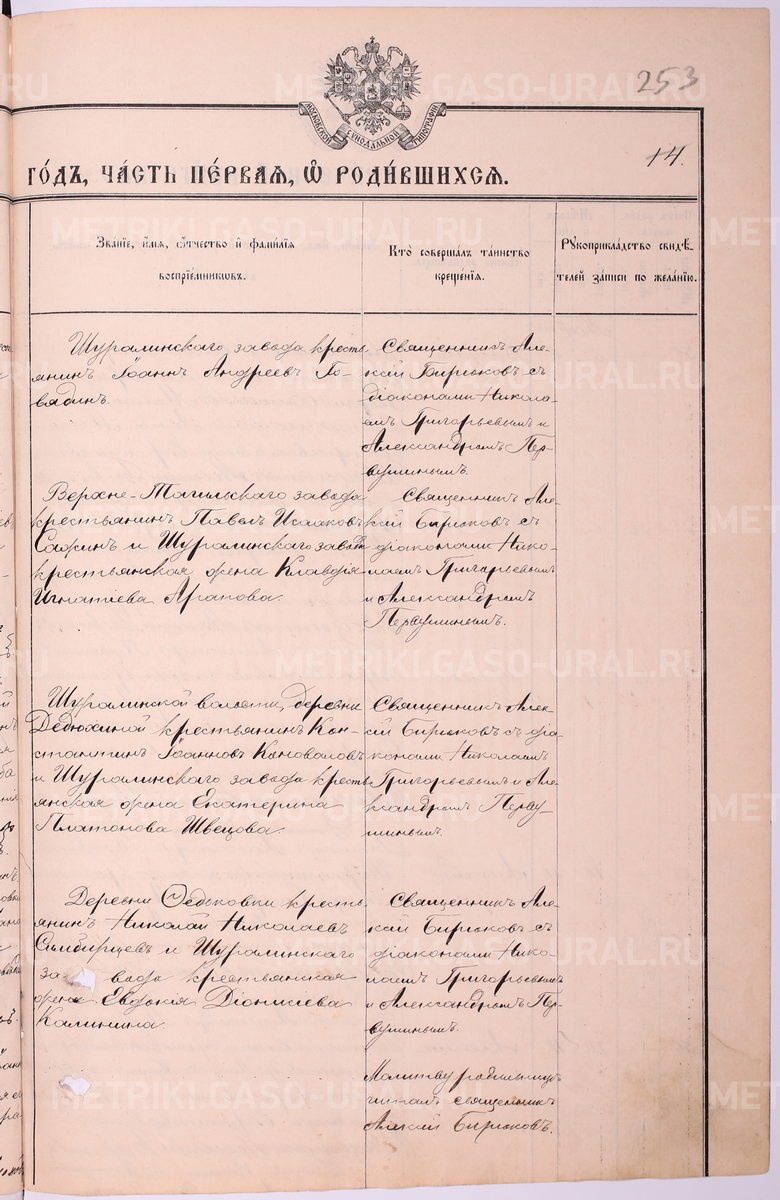 253
МОСКОВСКОЙ СѴНОДАЛЬНОЙ ТИПОГРАФІИ
14.
ГОДЪ, ЧАСТЬ ПЕРВАЯ, Ѡ РОДИВШИХСЯ.
Званіе, имя, отчество и фамилія
воспріемниковъ.
Кто совершалъ таинство
крещенія.
Рукоприкладство свидѣ-
телей записи по желанію.
Шуралинскаго завода кресть
янинъ Іоаннъ Андреевъ Го-
вядинъ.
Священникъ Але-
ксій Бирюковъ съ
діаконами Никола-
емъ Григорьевымъ и
Александромъ Пер-
вушинымъ.
Верхне-Тагильскаго завода
крестьянинъ Павелъ Исааковъ
Сафинъ и Шуралинскаго завода
крестьянская жена Клавдія
Игнатіева Арапова.
Священникъ Але-
ксій Бирюковъ съ
діаконами Нико-
лаемъ Григорьевымъ
и Александромъ
Первушинымъ.
Шуралинской волости, деревни
Дедюхиной крестьянинъ Кон-
стантинъ Іоанновъ Коноваловъ
и Шуралинскаго завода кресть
янская жена Екатерина
Платонова Швецова.
Священникъ Алек
сій Бирюковъ съ діа
конами Николаемъ
Григорьевымъ и Але
ксандромъ Перву-
шинымъ.
Деревни Ѳедьковки кресть
янинъ Николай Николаевъ
Симбирцевъ и Шуралинскаго
за вода крестьянская
жена Евдокія Діонисіева
Калинина.
Священникъ Але-
ксій Бирюковъ съ
діаконами Нико-
лаемъ Григорьевымъ
и Александромъ Пер-
вушинымъ.
Молитву родильницѣ
читалъ священникъ
Алексій Бирюковъ.
METRIKI.GASO-URAL.RU